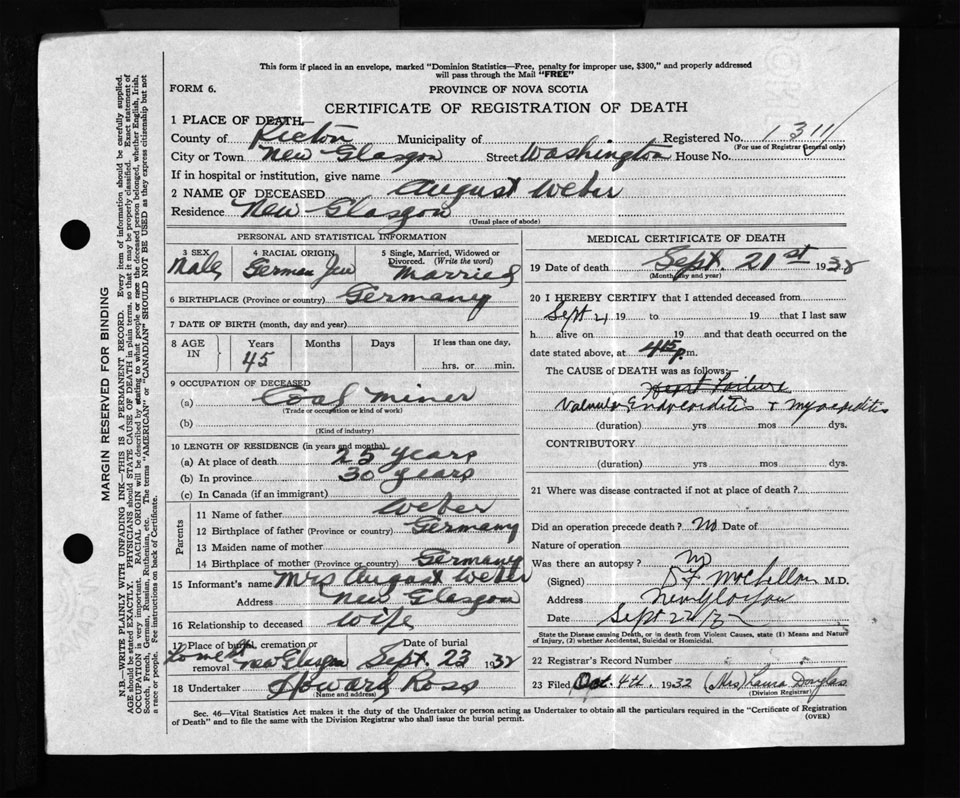 This form if placed in an envelope, marked "Dominion Statistics—Free, penalty for improper use, $300," and properly addressed
will pass through the Mail "FREE"
FORM 6.
PROVINCE OF NOVA SCOTIA
CERTIFICATE OF REGISTRATION OF DEATH
1 PLACE OF DEATH
County of Pictou Municipality of Registered No. 1311
(For use of Registrar General only)
City or Town New Glasgow Street Washington House No.
If in hospital or institution, give name
2 NAME OF DECEASED August Weber
Residence New Glasgow
(Usual place of abode)
PERSONAL AND STATISTICAL INFORMATION
3 SEX 4 RACIAL ORIGIN 5 Single, Married, Widowed or
Divorced. (Write the word)
Male German Jew Married
6 BIRTHPLACE (Province or country) Germany
7 DATE OF BIRTH (month, day and year)
8 AGE IN Years Months Days If less than one day,
45 hrs. or min.
9 OCCUPATION OF DECEASED
(a) Coal Miner
(Trade or occupation or kind of work)
(b)
(Kind of industry)
10 LENGTH OF RESIDENCE (in years and months)
(a) At place of death 25 years
(b) In province 30 years
(c) In Canada (if an immigrant)
Parents
11 Name of father Weber
12 Birthplace of father (Province or country) Germany
13 Maiden name of mother
14 Birthplace of mother (Province or country) Germany
15 Informant's name Mrs August Weber
Address New Glasgow
16 Relationship to deceased wife
17 Place of burial, cremation or removal New Glasgow
Date of burial Sept. 23 1932
18 Undertaker Howard Ross
(Name and address)
MEDICAL CERTIFICATE OF DEATH
19 Date of death Sept. 21st 1932
(Month, day and year)
20 I HEREBY CERTIFY that I attended deceased from
Sept 21 19 to 19 that I last saw
h alive on 19 and that death occurred on
date stated above, at 4.15 p.m.
The CAUSE of DEATH was as follows:
Heart Failure
Valvular Endocarditis + Myocarditis
(duration) yrs mos dys.
CONTRIBUTORY
(duration) yrs mos dys.
21 Where was disease contracted if not at place of death?
Did an operation precede death? No Date of
Nature of operation
Was there an autopsy? No
(Signed) M.D.
Address New Glasgow
Date Sept 22/32
State the Disease causing Death, or in death from Violent Causes, state (1) Means and Nature
of Injury, (2) whether Accidental, Suicidal or Homicidal.
22 Registrar's Record Number
23 Filed Oct. 4th. 1932 (Mrs) Laura Douglas
(Division Registrar)
Sec. 46—Vital Statistics Act makes it the duty of the Undertaker or person acting as Undertaker to obtain all the particulars required in the "Certificate of Registration
of Death" and to file the same with the Division Registrar who shall issue the burial permit.
(OVER)
MARGIN RESERVED FOR BINDING
N.B.—WRITE PLAINLY WITH UNFADING INK—THIS IS A PERMANENT RECORD. Every item of information should be carefully supplied.
AGE should be stated EXACTLY. PHYSICIANS should STATE CAUSE OF DEATH in plain terms, so that it may be properly classified. Exact statement of
OCCUPATION is very important. RACIAL ORIGIN will be described by stating to what people or race the deceased person belonged, whether English, Irish,
Scotch, French, German, Russian, Ruthenian, etc. The terms "AMERICAN" or "CANADIAN" SHOULD NOT BE USED as they express citizenship but not
a race or people. Fee instructions on back of Certificate.